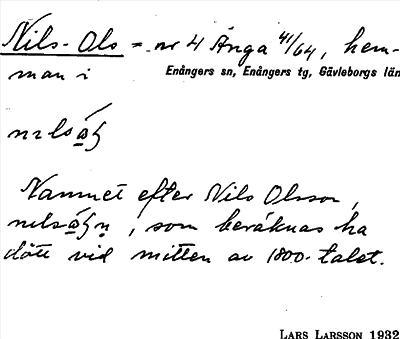 Nils-Ols = nr 4 Ånga 41/64, hem-
man i
Enångers sn, Enångers tg, Gävleborgs län
Namnet efter Nils Olsson,
, som beräknas ha
dött vid mitten av 1800-talet.
LARS LARSSON 1932